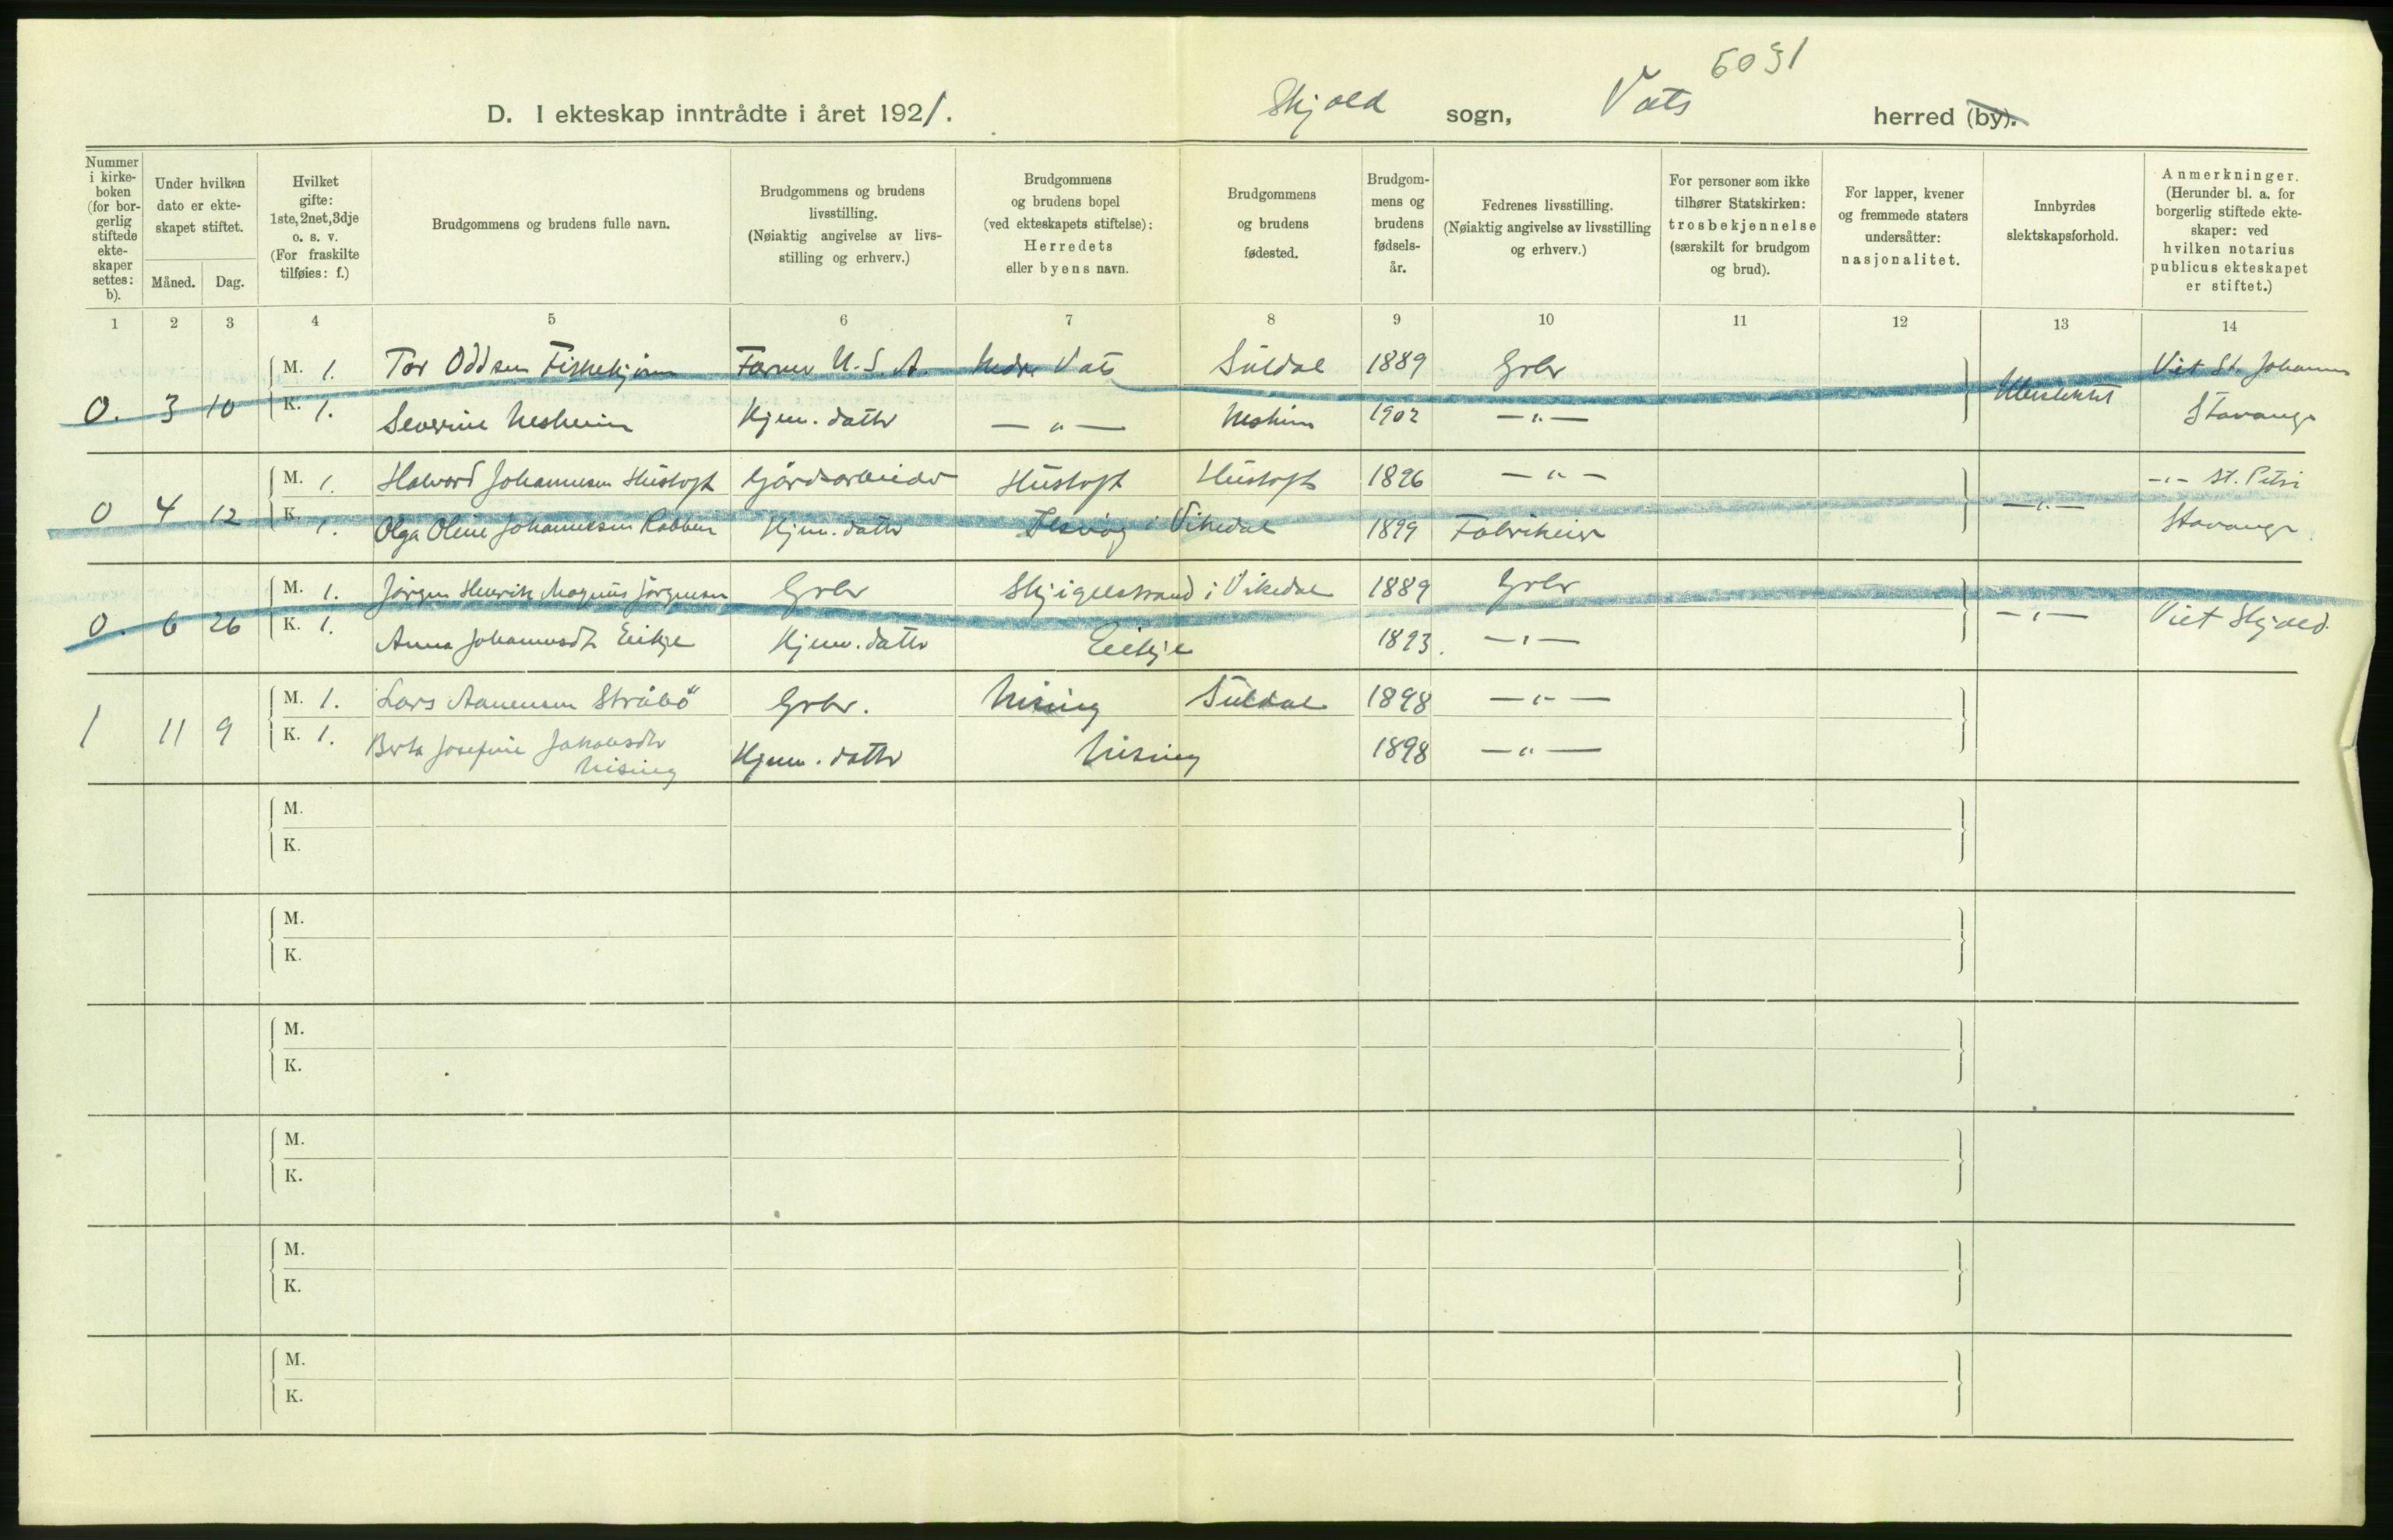 5031
D. I ekteskap inntrådte i året 1921. Skjold sogn, Vats herred (by).
Nummer i kirkeboken (for borgerlig stiftede ekteskaper settes: b).
Under hvilken dato er ekteskapet stiftet.
Måned. Dag.
Hvilket gifte: 1ste, 2net, 3dje o. s. v. (For fraskilte tilføies: f.)
Brudgommens og brudens fulle navn.
Brudgommens og brudens livsstilling. (Nøiaktig angivelse av livsstilling og erhverv.)
Brudgommens og brudens bopel (ved ekteskapets stiftelse): Herredets eller byens navn.
Brudgommens og brudens fødested.
Brudgommens og brudens fødselsår.
Fedrenes livsstilling. (Nøiaktig angivelse av livsstilling og erhverv.)
For personer som ikke tilhører Statskirken: trosbekjennelse (særskilt for brudgom og brud).
For lapper, kvener og fremmede staters undersåtter: nasjonalitet.
Innbyrdes slektskapsforhold.
Anmerkninger. (Herunder bl. a. for borgerlig stiftede ekteskaper: ved hvilken notarius publicus ekteskapet er stiftet.)
1 2 3 4 5 6 7 8 9 10 11 12 13 14
M. 1. Tor Oddsen Fiskekjøn Farmer U.S.A. Nedre Vats Suldal 1889 Grbr Viet St. Johannes
0. 3 10 K. 1. Severine Nesheim Hjem. dattr — " — Neshim 1902 — " — Ubeslektet Stavanger
M. 1. Halvard Johannesen Hustoft Gårdsarbeider Hustoft Hustoft 1896 — " — — " — St. Petri
0 4 12 K. 1. Olga Oline Johannesen Rabben Hjem. dattr Ilsvåg i Vikedal 1899 Fabrikeier — " — Stavanger
M. 1. Jörgen Henrik Magnus Jörgensen Grbr i Vikedal 1889 Grbr
0. 6 26 K. 1. Anna Johannesdtr Eikje Hjem. dattr Eikje 1893. — " — — " — Viet Skjold.
M. 1. Lars Aanensen Stråbö Grbr. Nising Suldal 1898 — " —
1 11 9 K. 1. Berta Josefine Jakobsdtr Nising Hjem. dattr Nising 1898 — " —
M.
K.
M.
K.
M.
K.
M.
K.
M.
K.
M.
K.